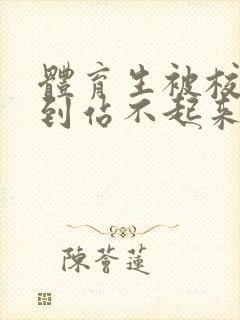 體育生被校
到佔不起來
陳薈蓮